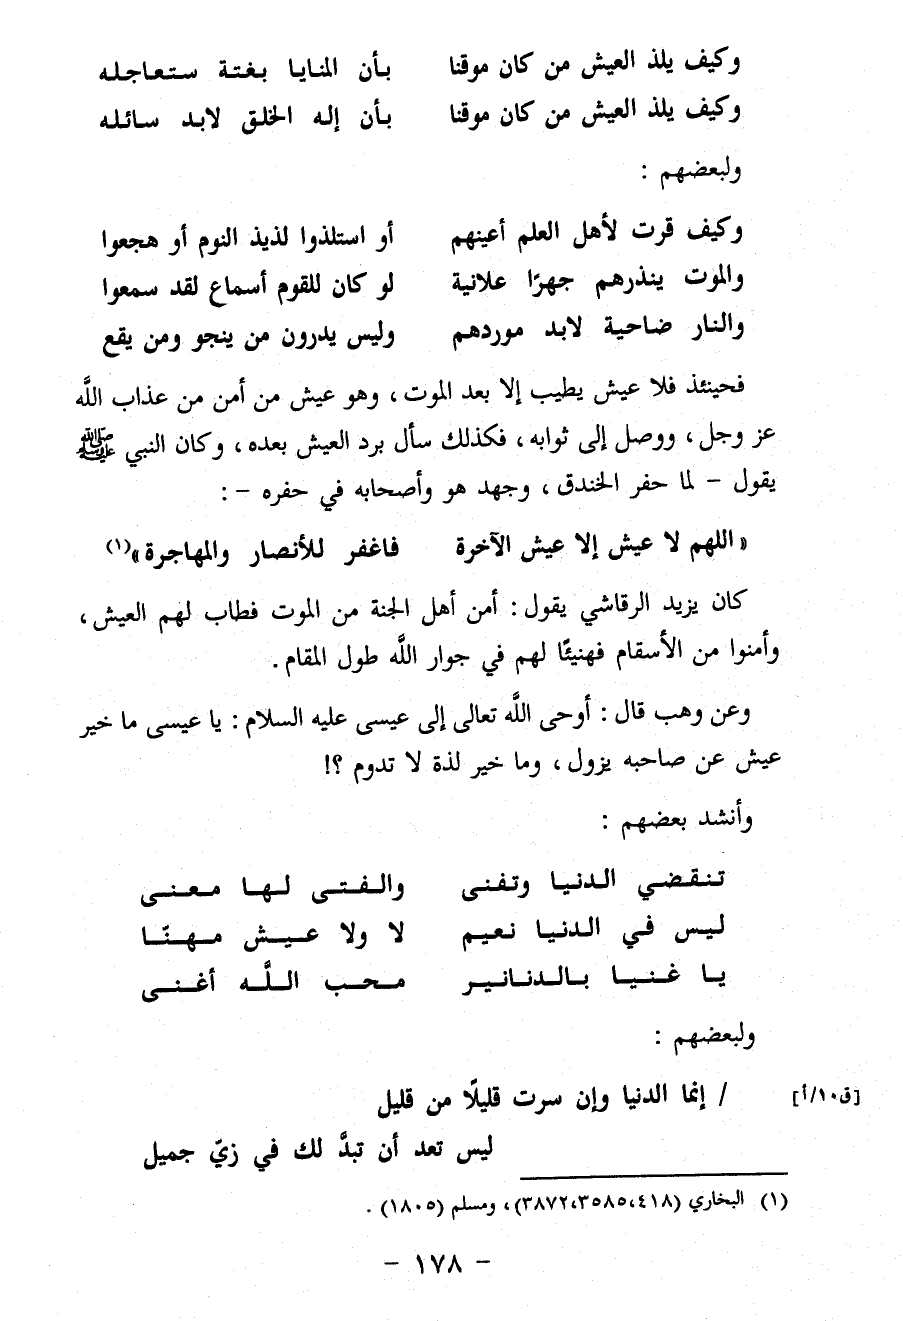 وكيف يلذ العيش من كان موقنا بأن المنايا بغتة ستعاجله
وكيف يلذ العيش من كان موقنا بأن إله الخلق لابد سائله
ولبعضهم :
وكيف قرت لأهل العلم أعينهم أو استلذوا لذيذ النوم أو هجعوا
والموت ينذرهم جهرًا علانية لو كان للقوم أسماع لقد سمعوا
والنار ضاحية لابد موردهم وليس يدرون من ينجو ومن يقع
فحينئذ فلا عيش يطيب إلا بعد الموت ، وهو عيش من أمن من عذاب اللَّه
عز وجل ، ووصل إلى ثوابه ، فكذلك سأل برد العيش بعده ، وكان النبي ﷺ
يقول - لما حفر الخندق ، وجهد هو وأصحابه في حفره - :
« اللهم لا عيش إلا عيش الآخرة فاغفر للأنصار والمهاجرة »(١)
كان يزيد الرقاشي يقول : أمن أهل الجنة من الموت فطاب لهم العيش ،
وأمنوا من الأسقام فهنيئًا لهم في جوار اللَّه طول المقام .
وعن وهب قال : أوحى اللَّه تعالى إلى عيسى عليه السلام : يا عيسى ما خير
عيش عن صاحبه يزول ، وما خير لذة لا تدوم ؟!
وأنشد بعضهم :
تنقضي الدنيا وتفنى والفتى لها معنى
ليس في الدنيا نعيم لا ولا عيش مهنّا
يا غنيا بالدنانير محب اللَّه أغنى
ولبعضهم :
[ق١٠/أ] / إنما الدنيا وإن سرت قليلًا من قليل
ليس تعد أن تبدَّ لك في زيّ جميل
(١) البخاري (٣٨٧٢،٣٥٨٥،٤١٨) ، ومسلم (١٨٠٥) .
- ١٧٨ -